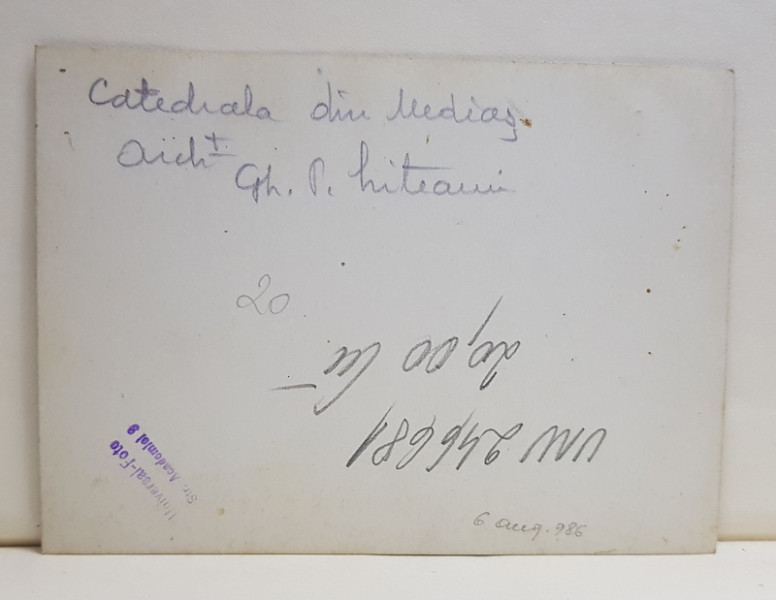 Catedrala din Mediaș
Arh.t
Gh. P. Liteanu
20
20,00 lei
UNV 246681
Universal-Foto
Str. Academiei 9
6 aug. 986